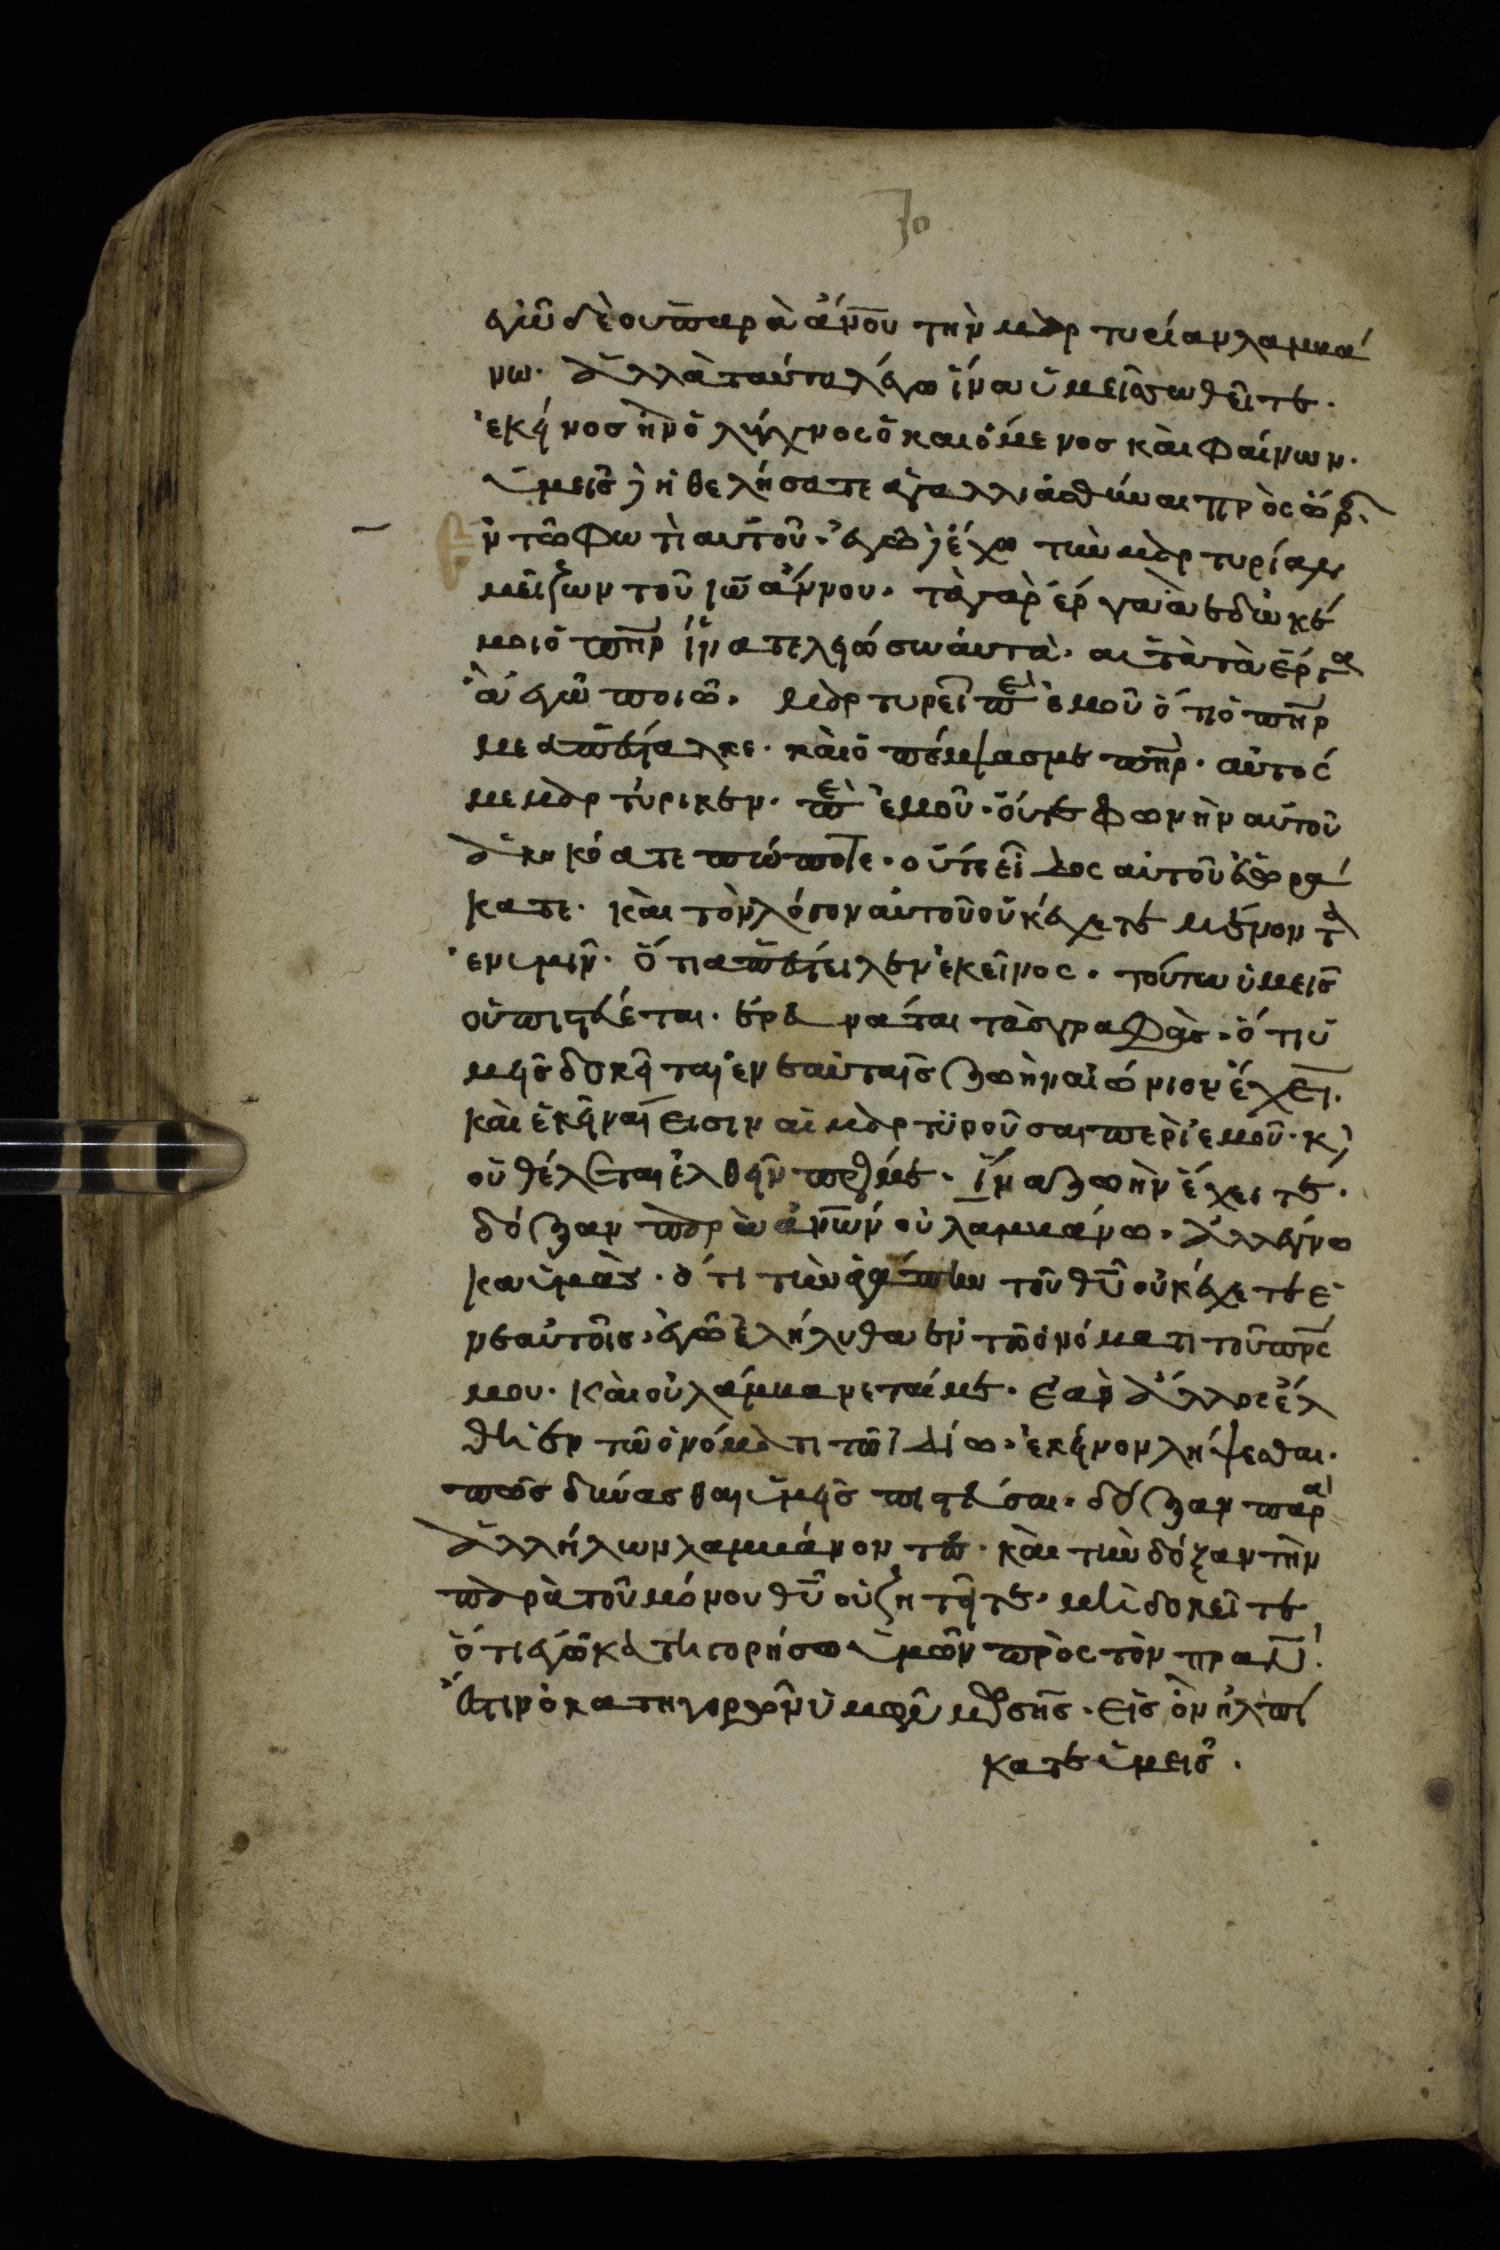 70
ἐγὼ δὲ οὐ παρὰ ἀν̅ου τὴν μαρτυρίαν λαμβά
νω· ἀλλὰ ταῦτα λέγω ἵνα ὑμεῖς σωθεῖτε·
ἐκεῖνος ἦν ὁ λύχνος ὁ καιόμενος καὶ φαίνων·
ὑμεῖς δὲ ἠθελήσατε ἀγαλλιασθῆναι πρὸς ὥρ
ν τῶ φωτὶ αὐτοῦ· ἐγὼ δὲ ἔχω τὴν μαρτυρίαν
μείζων τοῦ ἰω̅άννου· τὰ γὰρ ἔργα ἃ ἔδωκέ
μοι ὁ πη̅ρ ἵνα τελειώσω αὐτὰ· αὐτὰ τὰ ἔργα
ἃ ἐγὼ ποιῶ· μαρτυρεῖ περὶ ἐμοῦ ὅτι ὁ πη̅ρ
με ἀπέσταλκε· καὶ ὁ πέμψας με πη̅ρ· αὐτὸς
μεμαρτύρικεν· περὶ ἐμοῦ· οὔτε φωνὴν αὐτοῦ
ἀκηκόατε πώποτε· οὔτε εἶδος αὐτοῦ ἑωρά
κατε· καὶ τὸν λόγον αὐτοῦ οὐκ ἔχετε μένοντα
ἐν ὑμῖν· ὅτι ἀπέστειλεν ἐκεῖνος· τούτω ὑμεῖς
οὐ πιστεύεται· ἐρευνάται τὰς γραφὰς· ὅτι ὑ
μεῖς δοκεῖται ἐν ἑαυταῖς ζωὴν αἰώνιον ἔχειν·
καὶ ἐκεῖναί εἰσιν αἱ μαρτυροῦσαι περὶ ἐμοῦ· κ(αὶ)
οὐ θέλεται ἐλθεῖν πρός με· ἵνα ζωὴν ἔχειτε·
δόξαν παρὰ ἀν̅ων οὐ λαμβάνω· ἀλλ' ἔγνω
κα ὑμᾶς· ὅτι τὴν ἀγάπην τοῦ θυ̅ οὐκ ἔχετε ἐ
ν ἑαυτοῖς· ἐγὼ ἐλήλυθα ἐν τῶ ὀνόματι τοῦ πρ̅ς
μου· καὶ οὐ λαμβάνεταί με· ἐὰν ἄλλος ἔλ
θη ἐν τῶ ὀνόματι τῶ ἰδίω· ἐκεῖνον λήψεσθαι·
πῶς δύνασθαι ὑμεῖς πιστεῦσαι· δόξαν παρὰ
ἀλλήλων λαμβάνοντες· καὶ τὴν δόξαν τὴν
παρὰ τοῦ μόνου θυ̅ οὐ ζητεῖτε· μὴ δοκεῖτε
ὅτι ἐγὼ κατηγορήσω ὑμῶν πρὸς τὸν πρα̅·
ἔστιν ὁ κατηγορῶν ὑμῶν μωσῆς· εἰς ὃν ἠλπί
κατε ὑμεῖς·